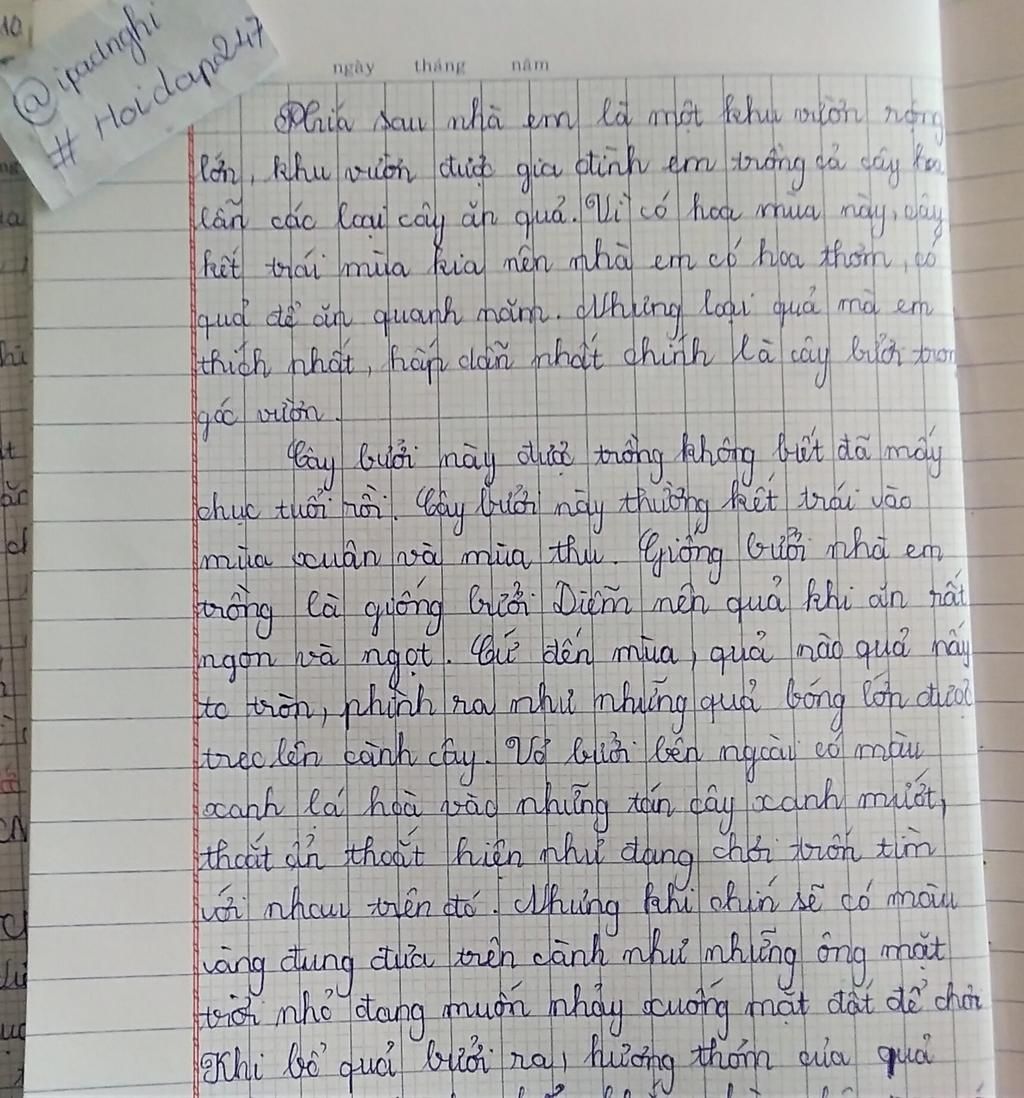 10
@ipadnghi
# Hoidap247
ngày tháng năm
Phía sau nhà em là một khu vườn rộng
lớn, khu vườn được gia đình em trồng cả cây hoa
lẫn các loại cây ăn quả. Vì có hoa mùa này, cây
kết trái mùa kia nên nhà em có hoa thơm, có
quả để ăn quanh năm. Nhưng loại quả mà em
thích nhất, hấp dẫn nhất chính là cây bưởi tron
góc vườn.
Cây bưởi này được trồng không biết đã mấy
chục tuổi rồi. Cây bưởi này thường kết trái vào
mùa xuân và mùa thu. Giống bưởi nhà em
trồng là giống bưởi Diễn nên quả khi ăn rất
ngon và ngọt. Cứ đến mùa, quả nào quả nấy
to tròn, phình ra như những quả bóng lớn được
treo lên cành cây. Vỏ bưởi bên ngoài có màu
xanh lá hoà vào những tán cây xanh mướt,
thoắt ẩn thoắt hiện như đang chơi trốn tìm
với nhau trên đó. Nhưng khi chín sẽ có màu
vàng đung đưa trên cành như những ông mặt
trời nhỏ đang muốn nhảy xuống mặt đất để chơi
Khi bổ quả bưởi ra, hương thơm của quả